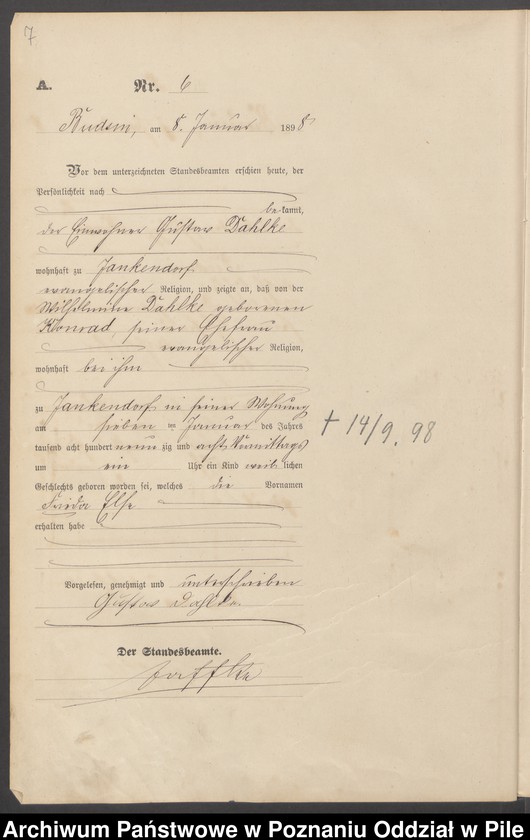 7
A. Nr. 6
Budsin, am 8. Januar 1898
Vor dem unterzeichneten Standesbeamten erschien heute, der
Persönlichkeit nach
be-kannt,
der Einwohner Gustav Dahlke
wohnhaft zu Jankendorf
evangelischer Religion, und zeigte an, daß von der
Wilhelmine Dahlke geborenen
Konrad, seiner Ehefrau
evangelischer Religion,
wohnhaft bei ihm
zu Jankendorf in seiner Wohnung
am sieben ten Januar des Jahres
tausend acht hundert neunzig und acht Vormittags
um ein Uhr ein Kind weiblichen
Geschlechts geboren worden sei, welches die Vornamen
Frida Else
erhalten habe
† 14/9. 98
Vorgelesen, genehmigt und unterschrieben
Gustav Dahlke
Der Standesbeamte.
Archiwum Państwowe w Poznaniu Oddział w Pile